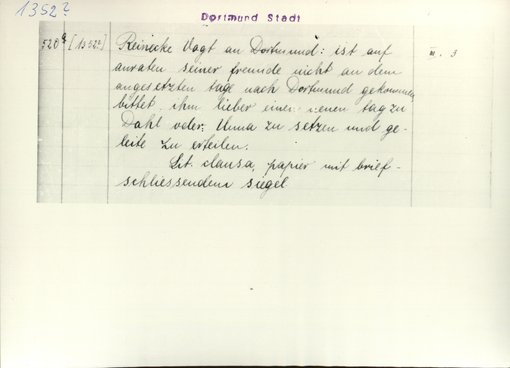 1352?
Dortmund Stadt
520a [1352?] Reinecke Vogt an Dortmund: ist auf II. 3
anraten seiner freunde nicht an dem
angesetzten tage nach Dortmund gekommen
bittet ihm lieber einen neuen tag zu
Dahl oder Unna zu setzen und ge-
leite zu erteilen.
Lit. clausa, papier mit brief-
schliessendem siegel